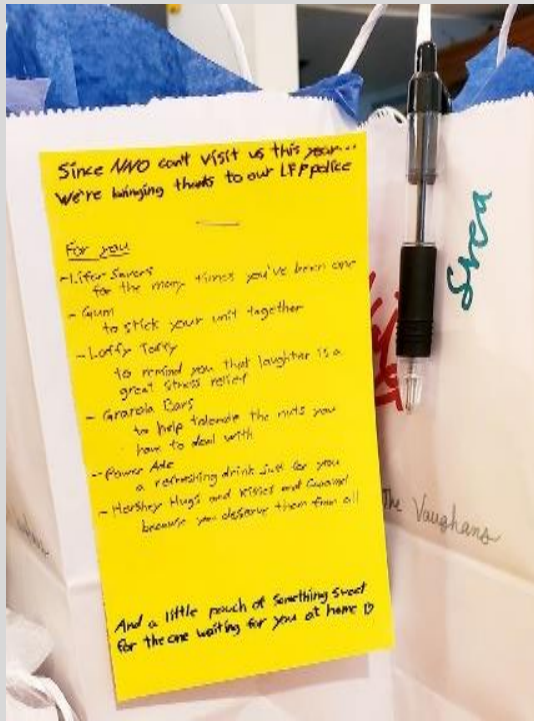 Since NNO can't visit us this year...
We're bringing thanks to our LFP police
For you
- Lifer Savers
for the many times you've been one
- Gum
to stick your unit together
- Laffy Taffy
to remind you that laughter is a
great stress relief
- Granola Bars
to help tolerate the nuts you
have to deal with
- Power Ade
a refreshing drink just for you
- Hershey Hugs and Kisses and Caramel
because you deserve them from all
And a little pouch of something sweet
for the one waiting for you at home
Svea
The Vaughans